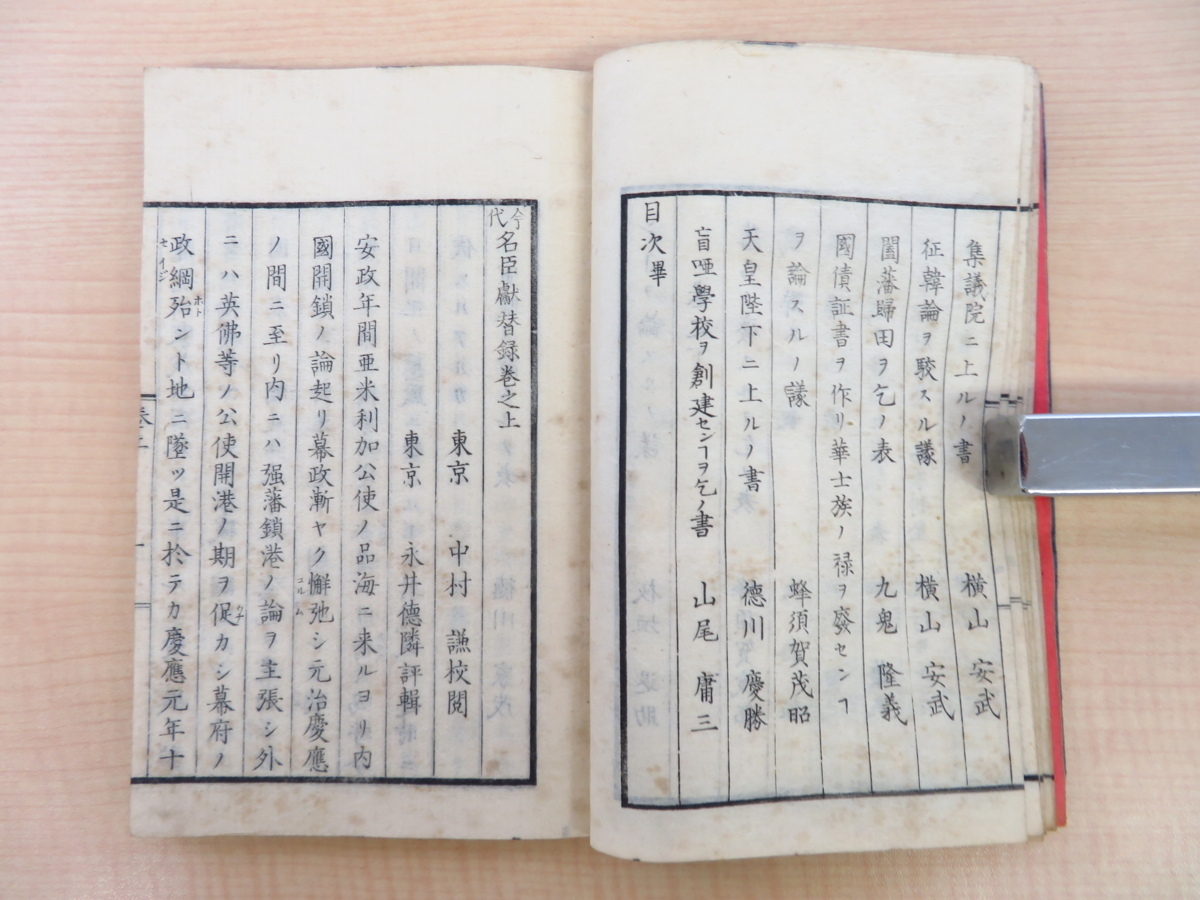 集議院ニ上ルノ書 橫山 安武
征韓論ヲ駮スル議 橫山 安武
闔藩歸田ヲ乞ノ表 九鬼 隆義
國債証書ヲ作リ華士族ノ禄ヲ廢センヿ
ヲ論スルノ議 蜂須賀茂昭
天皇陛下ニ上ルノ書 德川 慶勝
盲唖學校ヲ創建センヿヲ乞ノ書 山尾 庸三
目次畢
今代名臣獻替録巻之上
東京 中村 謙校閲
東京 永井德隣評輯
安政年間亜米利加公使ノ品海ニ来ルヨリ内
國開鎖ノ論起リ幕政漸ヤク懈弛シ元治慶應
ノ間ニ至リ内ニハ强藩鎖港ノ論ヲ主張シ外
ニハ英佛等ノ公使開港ノ期ヲ促カシ幕府ノ
政綱殆ント地ニ墜ツ是ニ於テカ慶應元年十